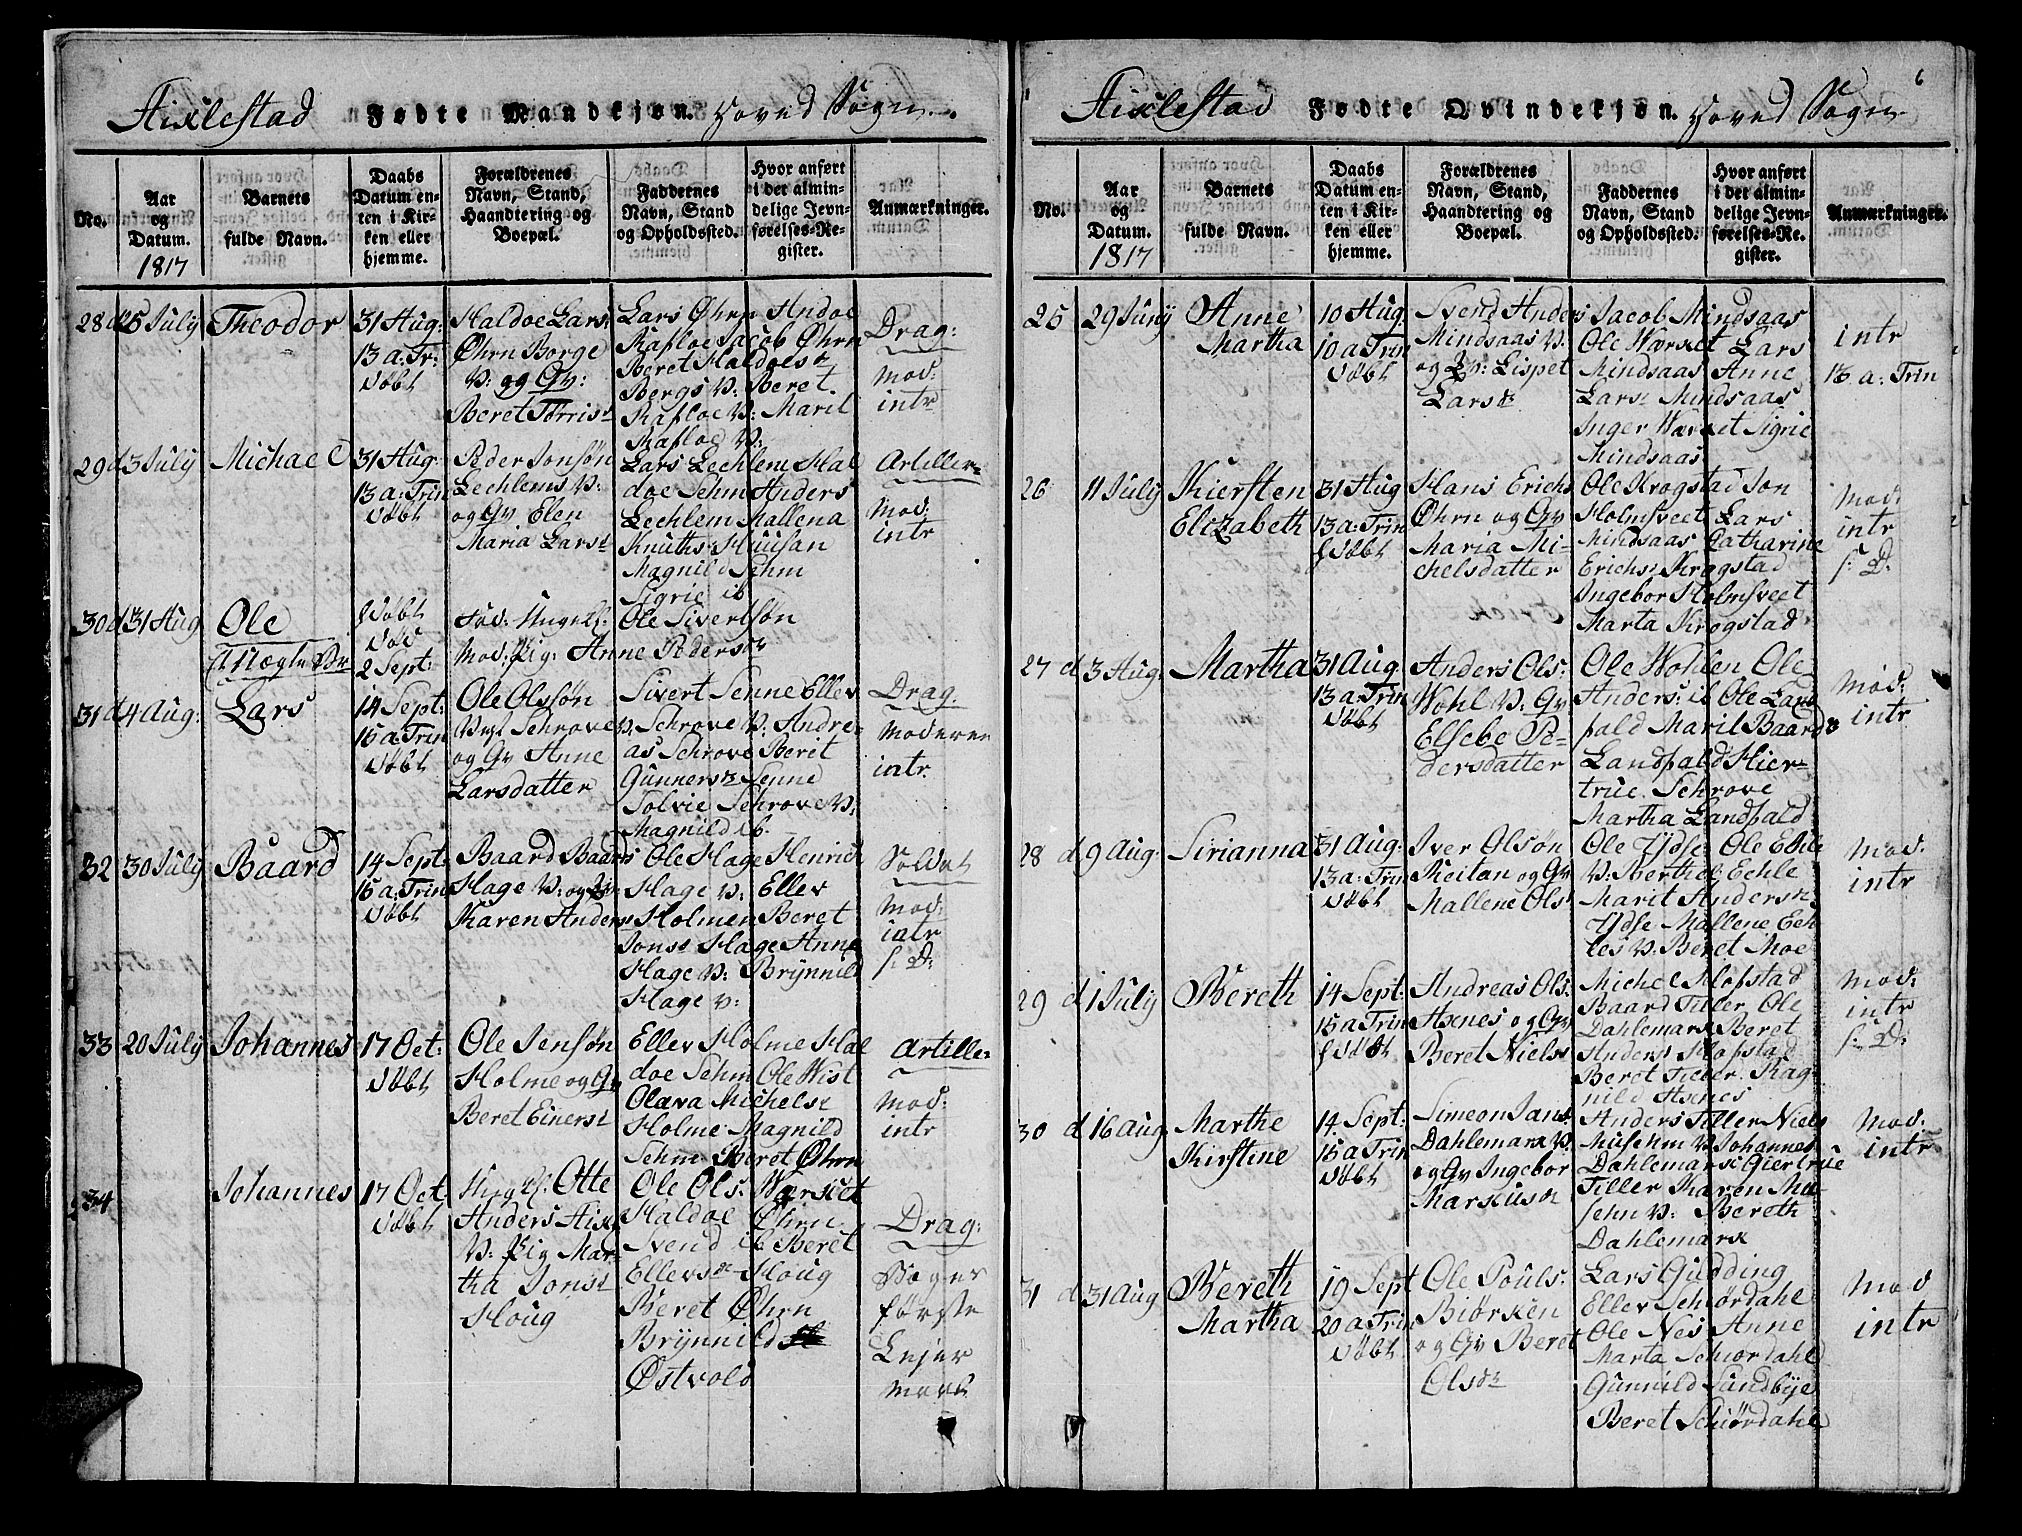 Aixlestad Fødte Mandkjøn. Hoved Sogn.
No.
Aar og Datum.
1817
Barnets fulde Navn.
Daabs Datum enten i Kirken eller hjemme.
Forældrenes Navn, Stand, Haandtering og Boepæl.
Faddernes Navn, Stand og Opholdssted.
Hvor anført i det almindelige Jevnførelses-Register.
Anmærkninger.
28 d 25 July
Theodor
31 Aug:
13 a: Tr:
døbt
Haldoe Lars:
Øhrn Borge
V: og Gv:
Beret Torris
Lars Øhrn Andoe
Rafloe Jacob Øhrn
Beret Haldoesr
Bergs V: Beret
Rafloe V: Maril
Rafloe V:
Drag:
mod:
intr
29 d 3 July
Michael
31 Aug
13 a: Trin
døbt
Peder Jonsøn
Lechlems V:
og Gv Elen
Maria Lars
Lars Lechlem Hal
doe Sehm Anders
Lechlem Mallena
Knuths: Huusan
Magnild Sehm
Sigrie ib
Artiller
mod:
intr
30 d 31 Aug
Ole
døbt
død
2 Sept:
Fad: Ungkl:
Mod: Pig: Anne Peders
Ole Sivertsøn
31 d 4 Aug:
Lars
14 Sept:
15 a: Trin
døbt
Ole Olssøn
Sehrove V:
og Gv Anne
Larsdatter
Sivert Senne Eller
Sehrove V: Andre
as Sehrove Beret
Gunners Senne
Solvie Sehrove V:
Magnild ib.
Drag.
moderen
intr.
32 30 July
Baard
14 Sept:
15 a: Trin
døbt
Baard Baards
Hage V: og Gv:
Karen Anders
Ole Hage Henrich
Hage V: Eller
Holmen Beret
Jonss Hage Anne
Hage V: Brynnild
Hage V:
Soldat
mod:
intr
f: D:
33 20 July
Johannes
17 Oct:
døbt
Ole Jensøn
Holme og Gv
Beret Einers
Eller Holme Hal
doe Sehm Ole Wist
Olava Michels
Holme Magnild
Sehm Beret Øhrn
Artille:
mod:
intr
34
Johannes
17 Oct
døbt
Ungkl: Otte
Anders Aix
V: Pig Mar
tha Jons
Houg
Ole Ols: Wærket
Haldoe Øhrn
Svend ib Beret
Ellers Houg
Beret Øhrn
Brynnild
Østvold
Drag:
Begges
første
Lejer
maal
6
Aixlestad Fødte Qvindekjøn. Hoved Sogn
No.
Aar og Datum.
1817
Barnets fulde Navn.
Daabs Datum enten i Kirken eller hjemme.
Forældrenes Navn, Stand, Haandtering og Boepæl.
Faddernes Navn, Stand og Opholdssted.
Hvor anført i det almindelige Jevnførelses-Register.
Anmærkninger.
25 29 Juny
Anne
Martha
10 Aug.
10 a Trin
døbt
Svend Anders
Mindsaas V:
og Gv: Lispet
Lars
Jacob Mindsaas
Ole Wærket Lars
Mindsaas Anne
Lars Mindsaas
Inger Wærket Sigrie
Mindsaas
intr
13 a: Trin
26 11 July
Kiersten
Elizabeth
31 Aug
13 a: Trin
døbt
Hans Erichs
Øhrn og Gv
Maria Mi-
chelsdatter
Ole Krogstad Jon
Holmsveet Lars
Mindsaas Catharine
Erichs: Krogstad
Ingebor Holmsveet
Marta Krogstad
mod:
intr
f: D:
27 d 3 Aug:
Martha
31 Aug
13 a Trin
døbt
Anders Ols:
Wohl V: Gv
Elsebe Pe-
dersdatter
Ole Wohlen Ole
Anders: ib Ole Land
fald Maril Baard
Landfald Kier-
true Sehrove
Martha Landfald
mod:
intr
28 d 9 Aug:
Sirianna
31 Aug:
13 a: Trin
døbt
Iver Olsøn
Reitan og Gv
Mallene Ols
Ole Ydse Ole Echle
V: Berthel Echle
Marit Anders
Ydse Mallene Ech
les V: Beret Moe
mod:
intr
29 d 1 July
Bereth
14 Sept:
15 a Trin
døbt
Andreas Ols:
Asnes og Gv
Beret Niels
Michel Klofstad
Baard Tiller Ole
Dahlemark Beret
Anders Klofstad
Beret Tiller Rag
nild Asnes
mod:
intr
f: D:
30 d 16 Aug
Marthe
Kirstine
14 Sept:
15 a Trin
døbt
Simeon Jans
Dahlemark V:
og Gv Ingebor
Markus
Anders Tiller Niels
Musehm V: Johannes
Dahlemark Giertrue
Tiller Karen Mu-
sehn V: Bereth
Dahlemark
mod:
intr
31 d 31 Aug
Bereth
Martha
19 Sept
20 a Trin
døbt
Ole Pouls:
Biørken
og Gv Beret
Ols
Lars Gudding
Eller Schiørdahl
Ole Nes Anne
Marta Schiørdahl
Gunnild Sundbye
Beret Schiørdahl
mod
intr